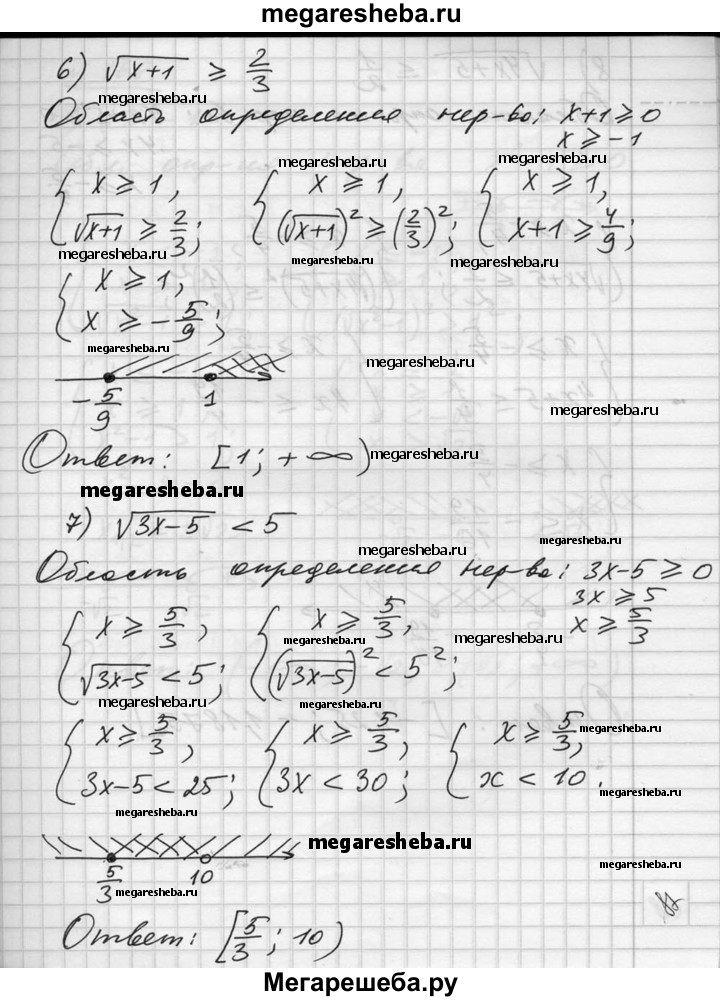 megaresheba.ru
6) √x+1 ≥ 2/3
megaresheba.ru
Область определения нер-во: x+1≥0
x≥-1
megaresheba.ru megaresheba.ru
{ x≥1, { x≥1, { x≥1,
√x+1 ≥ 2/3; (√x+1)² ≥ (2/3)²; x+1≥ 4/9;
megaresheba.ru megaresheba.ru megaresheba.ru
{ x≥1,
x ≥ -5/9;
megaresheba.ru megaresheba.ru
-5/9 1
megaresheba.ru
Ответ: [1; +∞)
megaresheba.ru
megaresheba.ru
7) √3x-5 < 5
megaresheba.ru
megaresheba.ru
Область определения нер-во: 3x-5≥0
3x≥5
x≥ 5/3
{ x≥ 5/3, { x≥ 5/3,
megaresheba.ru megaresheba.ru megaresheba.ru
√3x-5 < 5; (√3x-5)² < 5²;
megaresheba.ru megaresheba.ru
{ x≥ 5/3, { x≥ 5/3, { x≥ 5/3,
megaresheba.ru megaresheba.ru megaresheba.ru
3x-5<25; 3x < 30; x < 10.
megaresheba.ru
megaresheba.ru
megaresheba.ru
megaresheba.ru
5/3 10
megaresheba.ru
Ответ: [5/3; 10)
Мегарешеба.ру